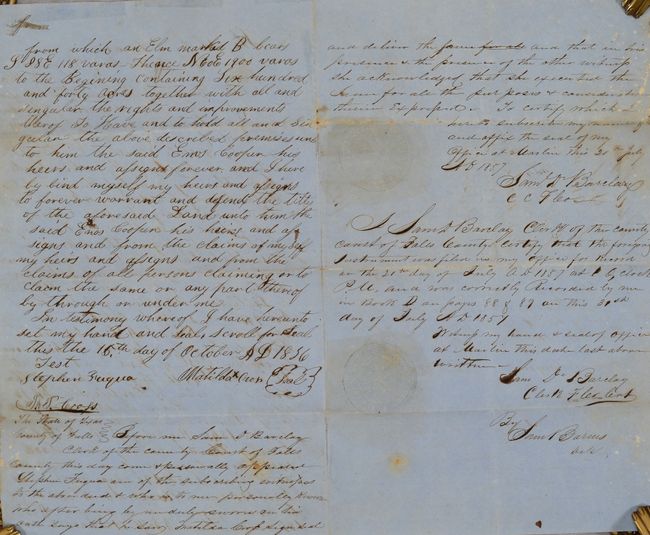 from
from which an Elm marked B bears
S 78 E 118 varas Thence N 60 E 1900 varas
to the Begining Containing Six hundred
and forty acres together with all and
singular the rights and improvements
thereof To Have and to hold all and Sin
gular the above described premises un
to him the said Enos Cooper his
heirs and assigns forever and I here
by bind myself my heirs and assigns
to forever warrant and defend the title
of the aforesaid Land unto him the
said Enos Cooper his heirs and as
signs and from the claims of myself
my heirs and assigns and from the
claims of all persons claiming or to
claom the same or any part thereof
by through or under me
In testimony whereof I have hereunto
set my hand and seal scroll for seal
this the 15th day of October AD 1856
Test
Stephen Fuqua Matilda Seal
The State of Texas
County of Falls Before me Sam D Barclay
Clerk of the county Court of Falls
County this day come personally appeared
Stephen Fuqua one of the subscribing witnesses
to the above deed & who is to me personally known
who after being by me duly sworn on his
oath says that he saw Matilda sign seal
and deliver the same and that in his
presence & the presence of the other witness
she acknowledged that she executed the
same for all the purposes & considerations
therein expressed To certify which I
hereto subscribe my name
and affix the seal of my
office at Marlin this 20th July
AD 1857
Sam D Barclay
C C F Co
I Sam D Barclay Clerk of the county
Court of Falls County certify that the foregoing
Instrument was filed in my office for Record
on the 20th day of July AD 1857 at o clock
P M and was correctly Recorded by me
in Book D on pages 88 & 89 on this
day of July AD 1857
Witness my hand & seal of office
at Marlin this date last above
written
Sam D Barclay
Clerk
By
Sam Barnes